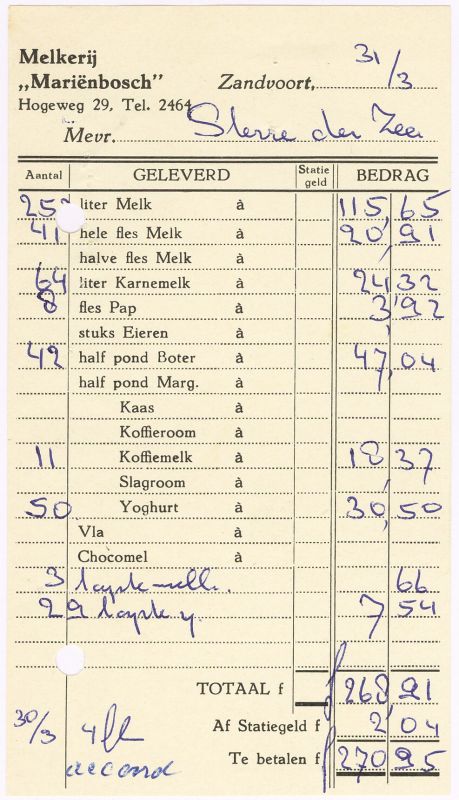 Melkerij
„Mariënbosch”
Zandvoort, 31/3
Hogeweg 29, Tel. 2464
Mevr. Sterre der Zee
Aantal GELEVERD Statie geld BEDRAG
liter Melk à 115,65
41 hele fles Melk à 20,91
halve fles Melk à
64 liter Karnemelk à 24,32
8 fles Pap à 3,92
stuks Eieren à
42 half pond Boter à 47,04
half pond Marg. à
Kaas à
Koffieroom à
11 Koffiemelk à 18,37
Slagroom à
50 Yoghurt à 30,50
Vla à
Chocomel à
3 66
29 7 54
TOTAAL f 268 91
30/3 4 fl Af Statiegeld f 2,04
accoord Te betalen f 270 95